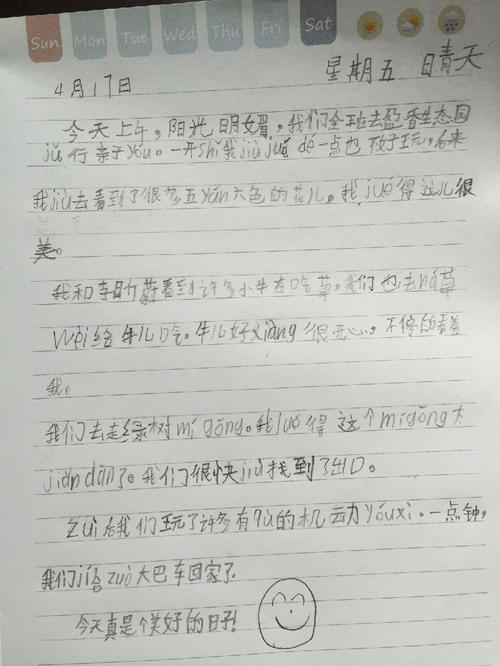 Sun Mon Tue Wed Thu Fri Sat
4月17日 星期五 日晴天
今天上午，阳光明媚，我们全班去盈香生态园
jǔ行亲子yóu。一开shǐ我jiù jué de一点也不好玩，后来
我jiù去看到了很多五yán六色的花儿，我jué得这儿很
美。
我和李昕蔚看到许多小牛在吃草，我们也去ná草
wèi给牛儿吃。牛儿好xiàng很开心，不停的看着
我。
我们去走绿树mí gōng。我jué得这个mígōng太
jiǎn dān了。我们很快jiù找到了出口。
zuì后我们玩了许多有qù的机动yóuxì。一点钟，
我们jiù zuò大巴车回家了。
今天真是个美好的日子！